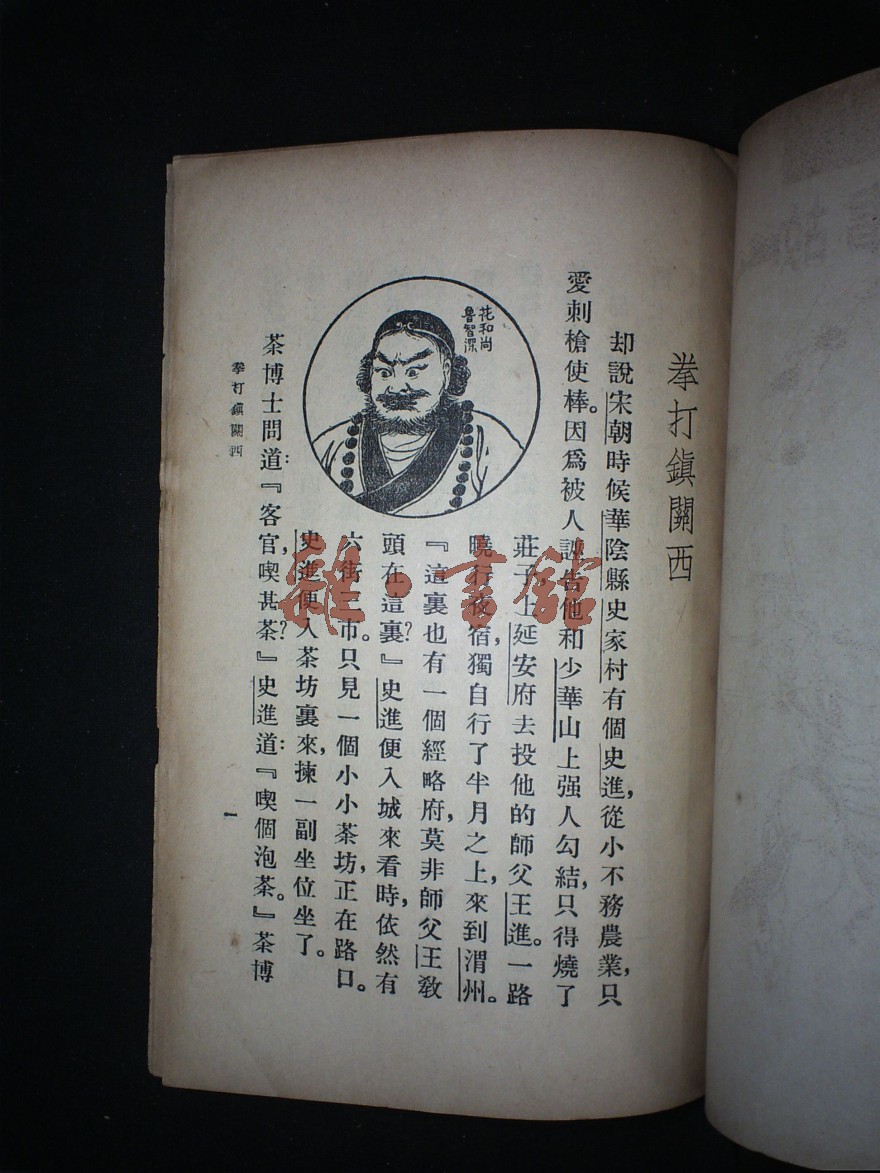 拳打鎮關西
却說宋朝時候華陰縣史家村有個史進，從小不務農業，只
愛刺槍使棒。因爲被人誣告他和少華山上强人勾結，只得燒了
莊子上延安府去投他的師父王進。一路
曉行夜宿，獨自行了半月之上，來到渭州。
『這裏也有一個經略府，莫非師父王敎
頭在這裏？』史進便入城來看時，依然有
六街三市。只見一個小小茶坊，正在路口。
史進便入茶坊裏來，揀一副坐位坐了。
茶博士問道：『客官，喫甚茶？』史進道：『喫個泡茶。』茶博
花和尚
魯智深
拳打鎮關西
一
雜·書館